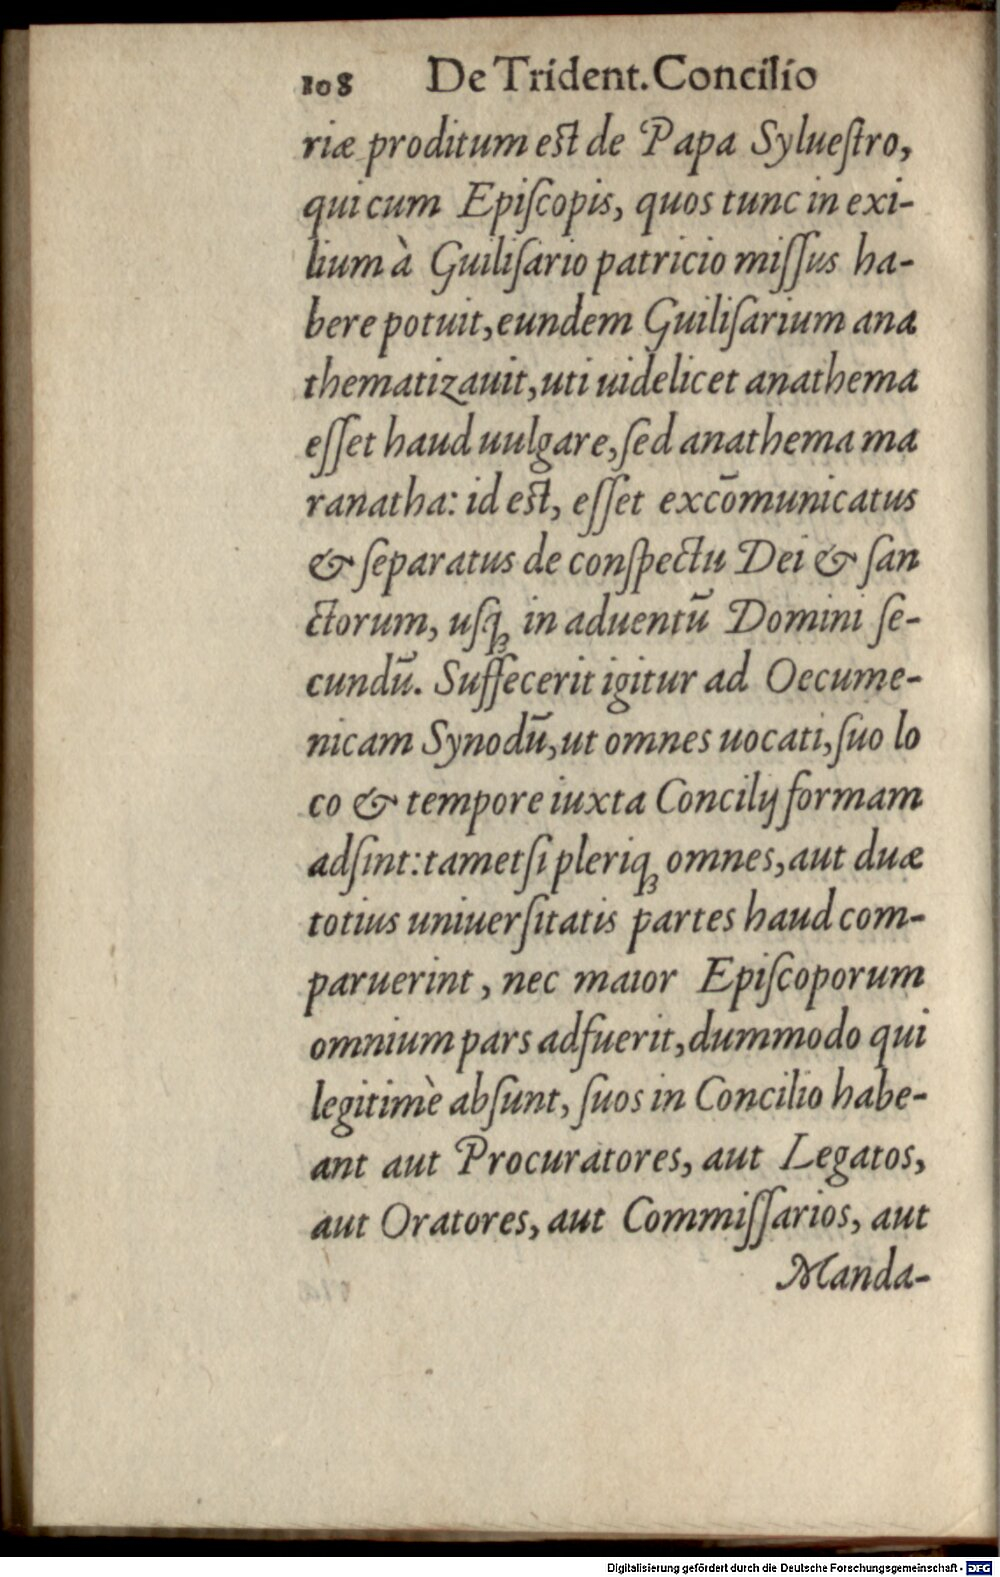 108 De Trident. Concilio
riæ proditum est de Papa Sylueſtro,
qui cum Epiſcopis, quos tunc in exi-
lium à Guiliſario patricio miſſus ha-
bere potuit, eundem Guiliſarium ana
thematizauit, uti uidelicet anathema
eſſet haud uulgare, ſed anathema ma
ranatha: id est, eſſet excōmunicatus
& ſeparatus de conſpectu Dei & ſan
ctorum, uſq́ꝫ in aduentū Domini ſe-
cundū. Suffecerit igitur ad Oecume-
nicam Synodū, ut omnes uocati, ſuo lo
co & tempore iuxta Concilij formam
adſint: tametſi pleriqꝫ omnes, aut duæ
totius uniuerſitatis partes haud com-
paruerint, nec maior Epiſcoporum
omnium pars adfuerit, dummodo qui
legitimè abſunt, ſuos in Concilio habe-
ant aut Procuratores, aut Legatos,
aut Oratores, aut Commiſſarios, aut
Manda-
Digitalisierung gefördert durch die Deutsche Forschungsgemeinschaft - DFG